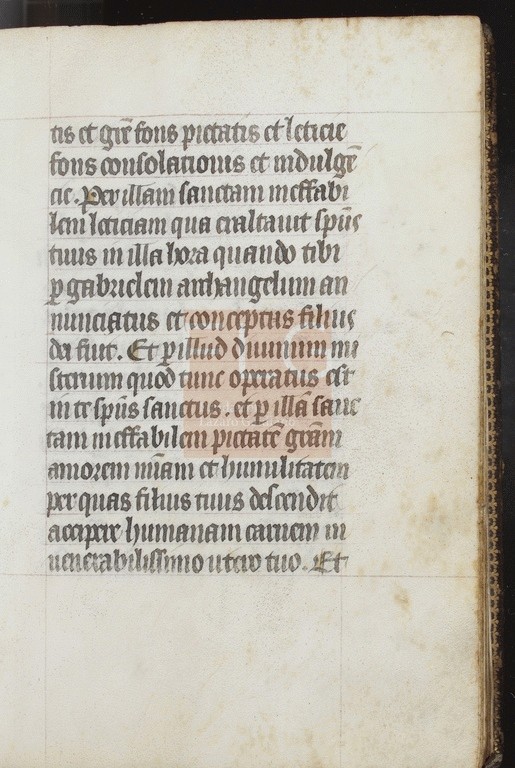 tis et gr̄e fons pietatis et leticie
fons consolationis et indulgē
cie. Per illam sanctam ineffabi
lem leticiam qua exaltauit sp̄us
tuus in illa hora quando tibi
ꝑ gabrielem archangelum an
nunciatus et conceptus filius
dei fuit. Et ꝑ illud diuinum mi
sterium quod tunc operatus est
in te sp̄us sanctus. et ꝑ illā sanc
tam ineffabilem pietatē grām
amorem m̄iam et humilitatem
per quas filius tuus descendit
accipere humanam carnem in
uenerabilissimo utero tuo. Et